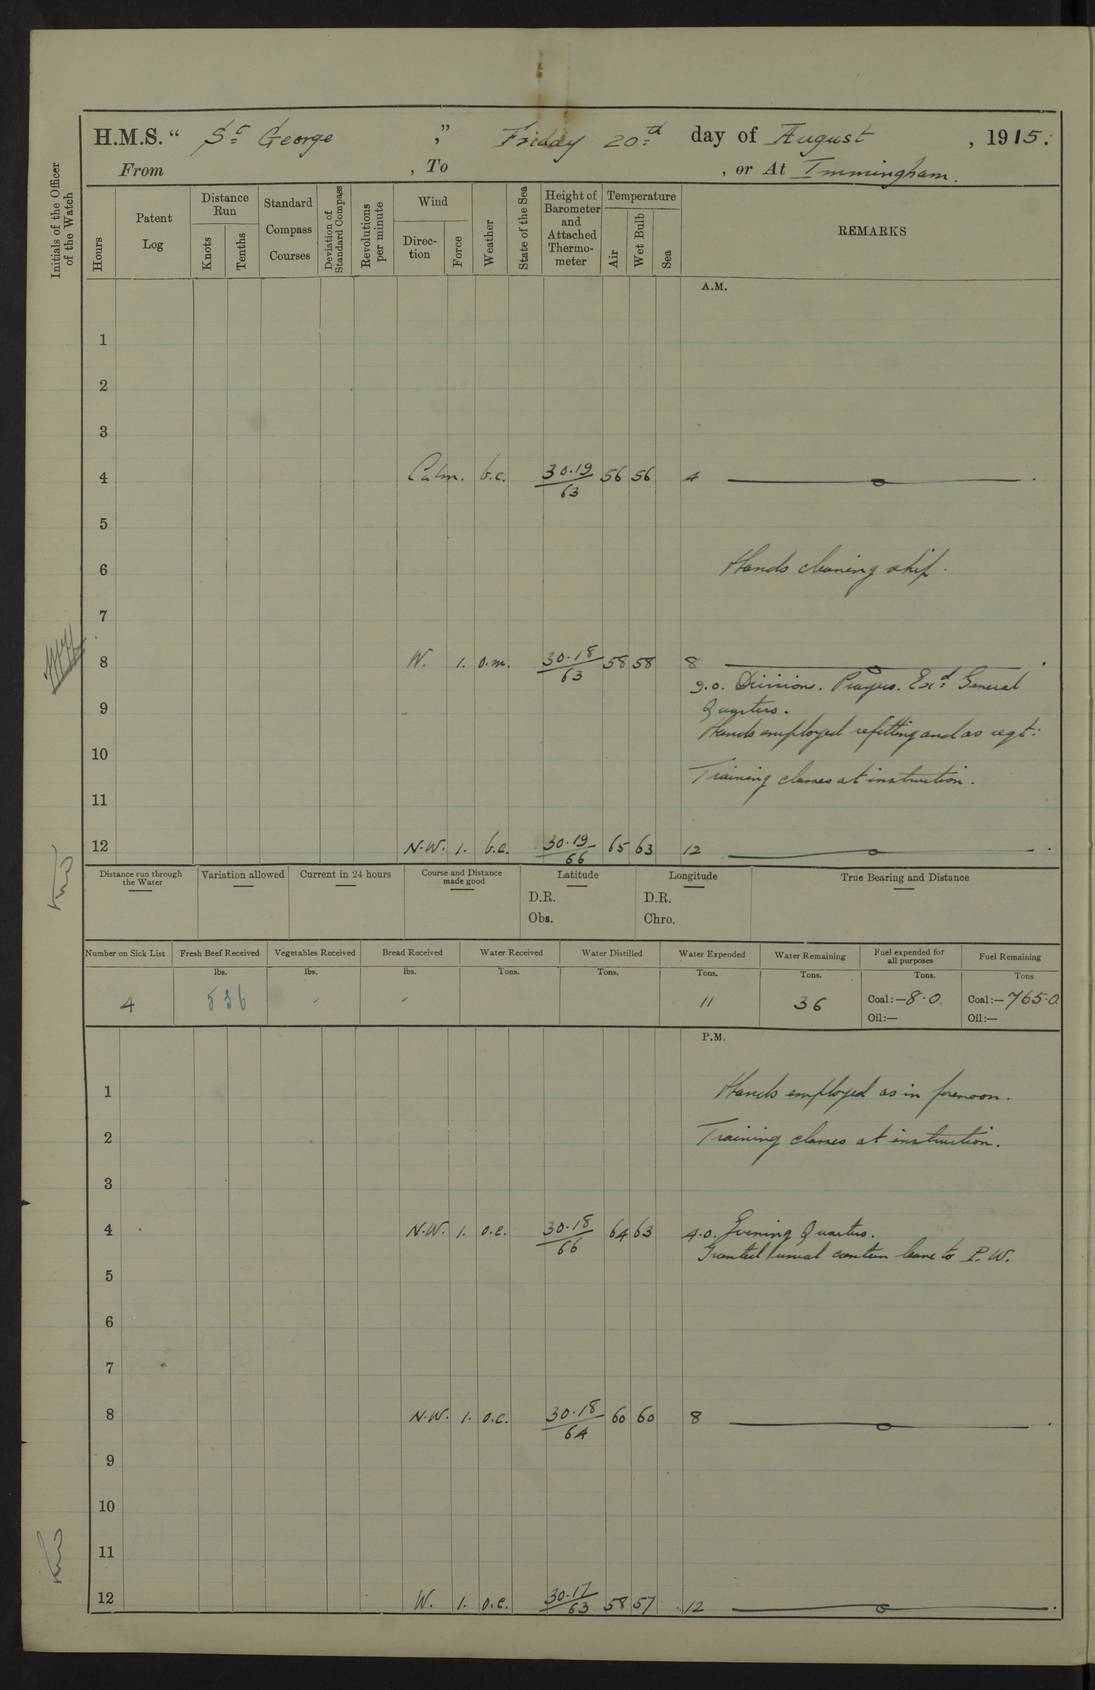 H.M.S. “ St George ,” Friday 20th day of August , 1915:
From , To , or At Immingham.
Initials of the Officer of the Watch
Hours
Patent Log
Distance Run
Knots
Tenths
Standard Compass Courses
Deviation of Standard Compass
Revolutions per minute
Wind
Direction
Force
Weather
State of the Sea
Height of Barometer and Attached Thermometer
Temperature
Air
Wet Bulb
Sea
REMARKS
A.M.
1
2
3
4 Calm. b.c. 30.19/63 56 56 4
5
6 Hands cleaning ship.
7
8 W. 1. o.m. 30.18/63 58 58 8
9.0. Divisions. Prayers. Exd General
9 Quarters.
Hands employed refitting and as reqt:
10
Training classes at instruction.
11
12 N.W. 1. b.c. 30.19/66 65 63 12
Distance run through the Water
Variation allowed
Current in 24 hours
Course and Distance made good
Latitude
D.R.
Obs.
Longitude
D.R.
Chro.
True Bearing and Distance
Number on Sick List Fresh Beef Received Vegetables Received Bread Received Water Received Water Distilled Water Expended Water Remaining Fuel expended for all purposes Fuel Remaining
lbs. lbs. lbs. Tons. Tons. Tons. Tons. Tons. Tons
4 536 11 36 Coal:—8.0. Coal:—765.0
Oil:— Oil:—
P.M.
1 Hands employed as in forenoon.
2 Training classes at instruction.
3
4 N.W. 1. o.c. 30.18/66 64 63 4.0. Evening Quarters.
Granted usual canteen leave to P.W.
5
6
7
8 N.W. 1. o.c. 30.18/64 60 60 8
9
10
11
12 W. 1. o.c. 30.17/63 58 57 12